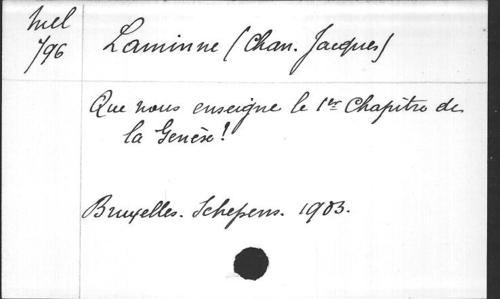 Mel
/96
Laminne (Chan. Jacques)
Que nous enseigne le 1er Chapitre de
la Genèse!
Bruxelles. Schepens. 1903.